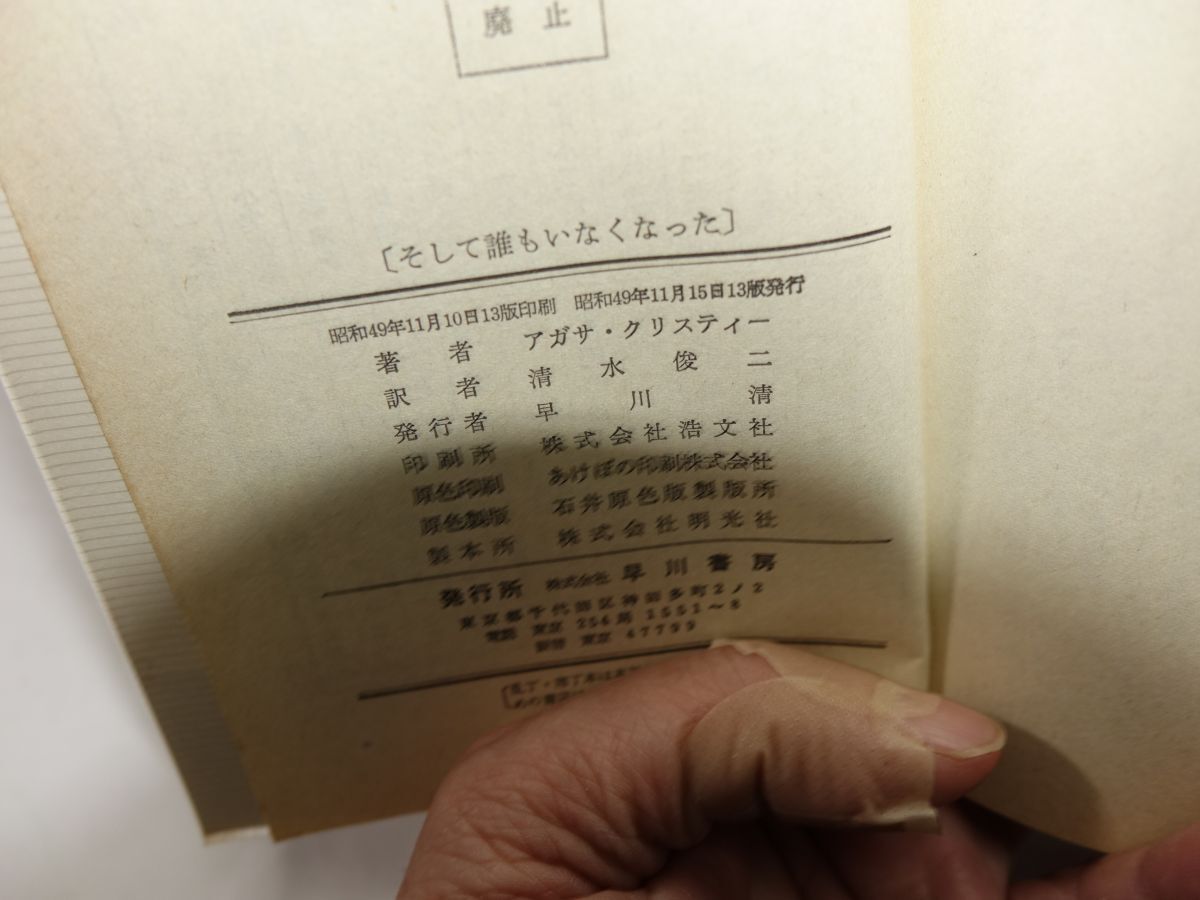 廃止
〔そして誰もいなくなった〕
昭和49年11月10日13版印刷 昭和49年11月15日13版発行
著者 アガサ・クリスティー
訳者 清水俊二
発行者 早川清
印刷所 株式会社浩文社
原色印刷 あけぼの印刷株式会社
原色製版 石井原色版製版所
製本所 株式会社明光社
発行所 株式会社 早川書房
東京都千代田区神田多町2ノ2
電話 東京 254局 1551~8
振替 東京 47799
〔乱丁・落丁本は